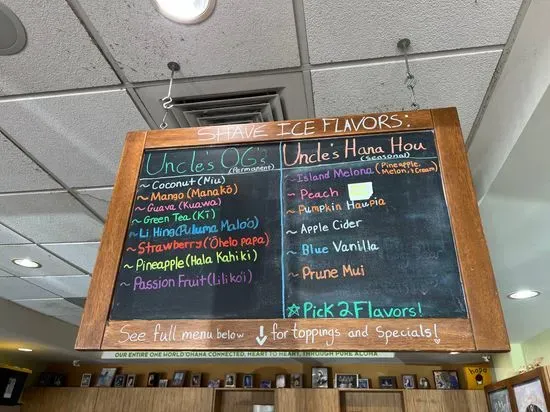 SHAVE ICE FLAVORS:
Uncle's OG's
(Permanent)
~ Coconut (Niu)
~ Mango (Manakō)
~ Guava (Kuawa)
~ Green Tea (Kī)
~ Li Hing (Puluma Maloʻo)
~ Strawberry (ʻŌhelo papa)
~ Pineapple (Hala Kahiki)
~ Passion Fruit (Lilikoʻi)
Uncle's Hana Hou
(seasonal)
~ Island Melona (Pineapple, Melon, & Cream)
~ Peach
~ Pumpkin Haupia
~ Apple Cider
~ Blue Vanilla
~ Prune Mui
☆ Pick 2 Flavors!
See full menu below ↓ for toppings and Specials!
OUR ENTIRE ONE WORLD ʻOHANA CONNECTED, HEART TO HEART, THROUGH PURE ALOHA